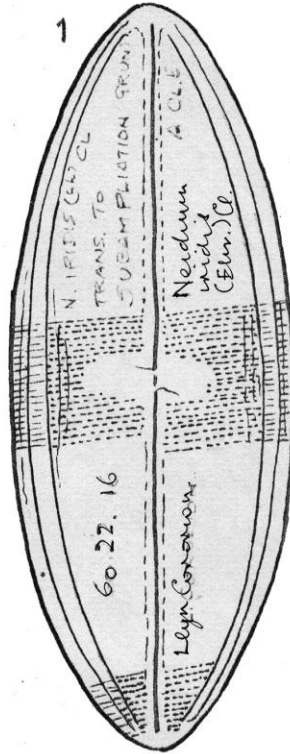 1
N. IRIDIS (Eh.) CL
TRANS. TO
SUBAMPLIATION GRUN
A CL.E
Neidium
iridis
(Ehr.) Cl.
60 22. 16
Llyn Coronion